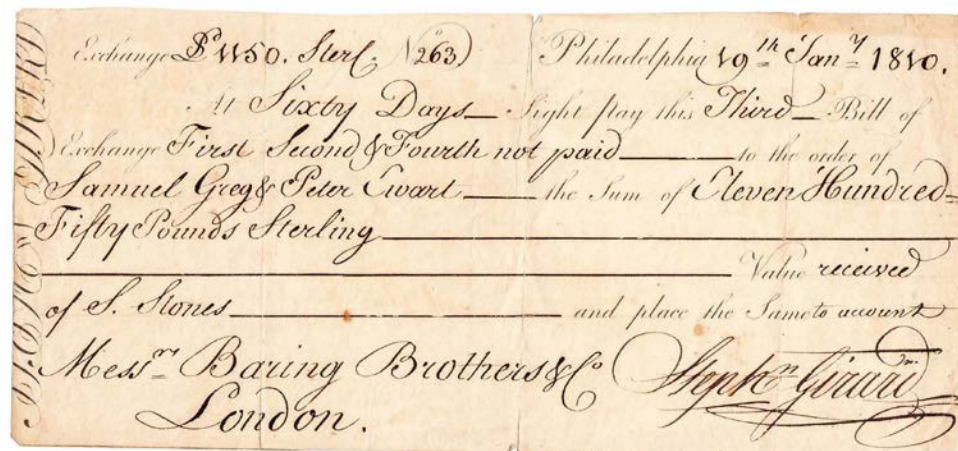 Exchange £1150. Sterl. No 263 Philadelphia 19th Jany 1810.
At Sixty Days Sight pay this Third Bill of
Exchange First Second & Fourth not paid to the order of
Samuel Greg & Peter Ewart the Sum of Eleven Hundred
Fifty Pounds Sterling
Value received
of S. Stones and place the Same to account
Messrs Baring Brothers & Co Stephn Girard
London.